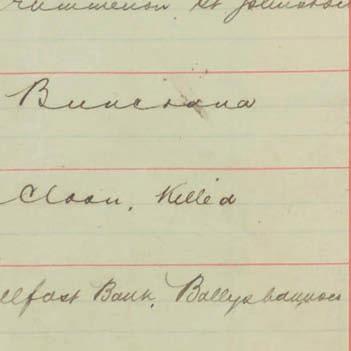 St Johnston
Buncrana
Cloon, Killea
elfast Bank, Ballyshannon